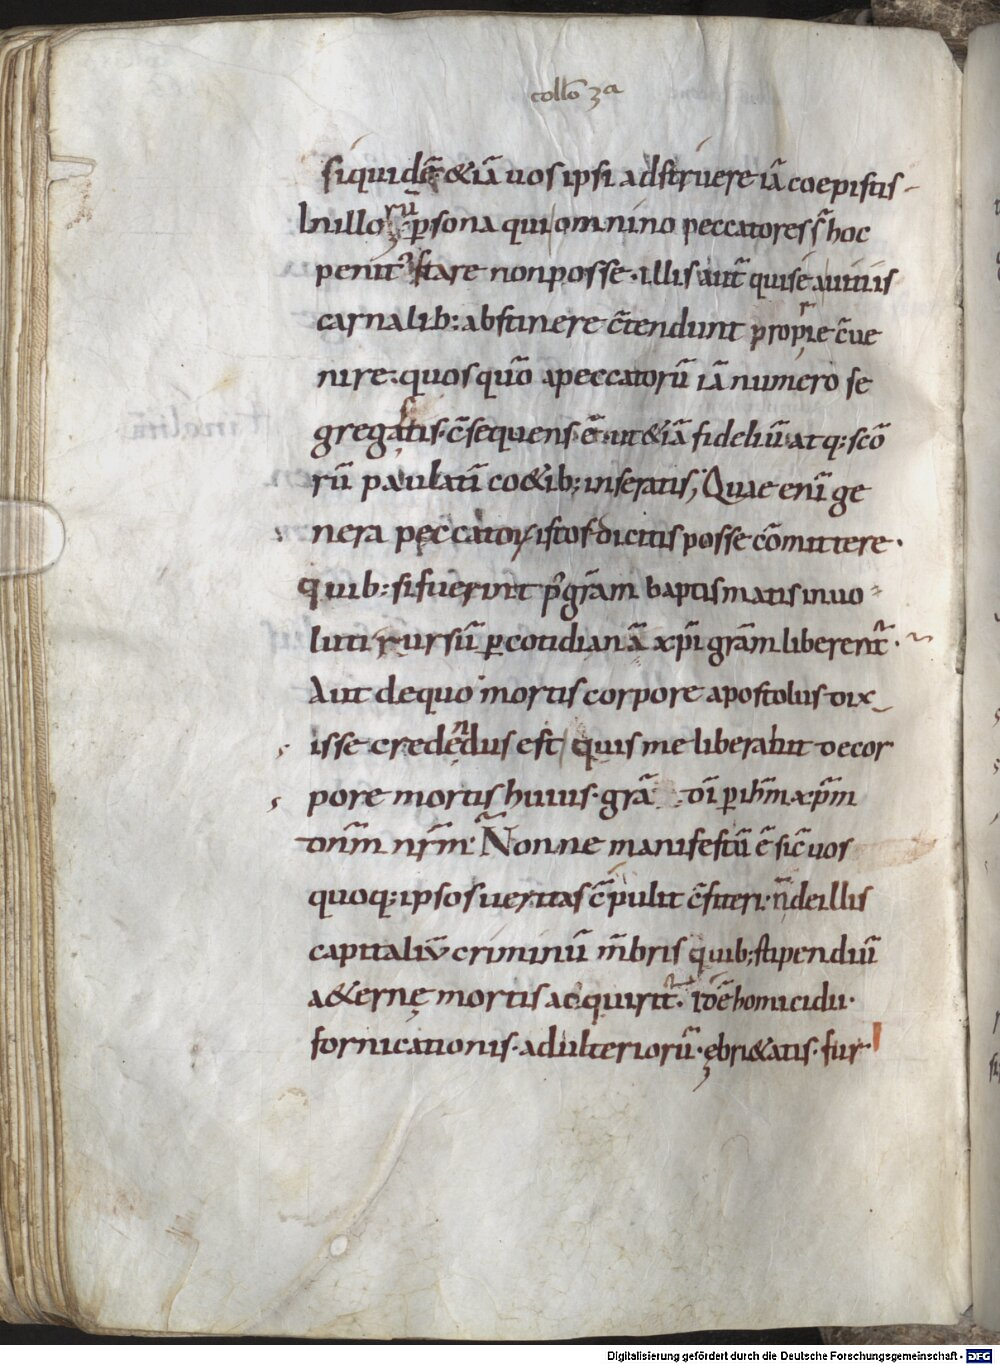 collo 3a
siquidē &iā uos ipsi adstruere iā coepistis-
In illorū psona qui omnino peccatores s̄ hoc
penit' stare non posse· illis aut̄ qui se a uitiis
carnalib: abstinere c̄tendunt proprie c̄ue
nire· quos quō a peccatorū iā numero se
gregatis· c̄sequens ē· ut &iā fideliū atq: scō
rū paulatī co&ib: inseratis; Quae enī ge
nera peccator istos dicitis posse cōmittere·
quib: si fuerint p' grām baptismatis inuo-
luti rursū p cotidianā xp̄i grām liberent̄·
Aut de quo mortis corpore apostolus dix
isse credēndus est quis me liberabit de cor
pore mortis huius· grā dī p ihm̄ xp̄m
dn̄m nr̄m· Nonne manifestū ē sic̄ uos
quoq: ipsos ueritas c̄pulit c̄fiteri· n̄ de illis
capitaliū criminū m̄bris quib: stipendiū
a&ernę mortis adquirit̄· idē homicidii·
fornicationis· adulteriorū· ębri&atis· fur
Digitalisierung gefördert durch die Deutsche Forschungsgemeinschaft - DFG